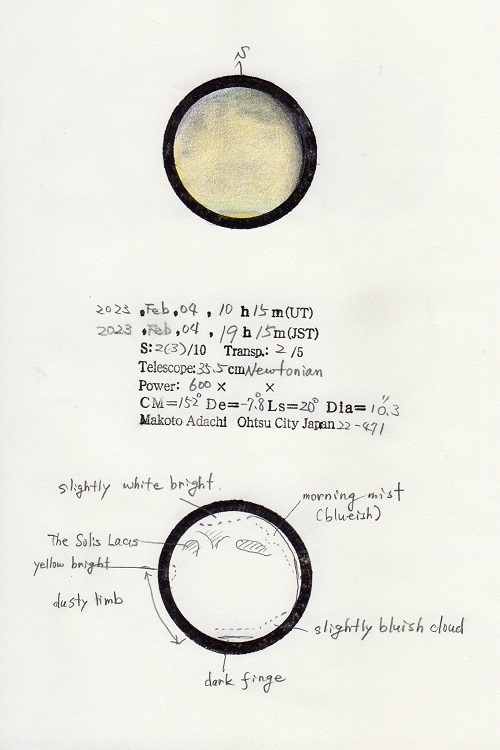 S
2023, Feb, 04, 10 h 15 m (UT)
2023, Feb, 04, 19 h 15 m (JST)
S: 2(3)/10 Transp.: 2 /5
Telescope: 35.5 cm Newtonian
Power: 600 × ×
CM=152° De=-7.8° Ls=20° Dia=10".3
Makoto Adachi Ohtsu City Japan 22-471
slightly white bright.
morning mist
(blueish)
The Solis Lacus
yellow bright
dusty limb
slightly bluish cloud
dark finge